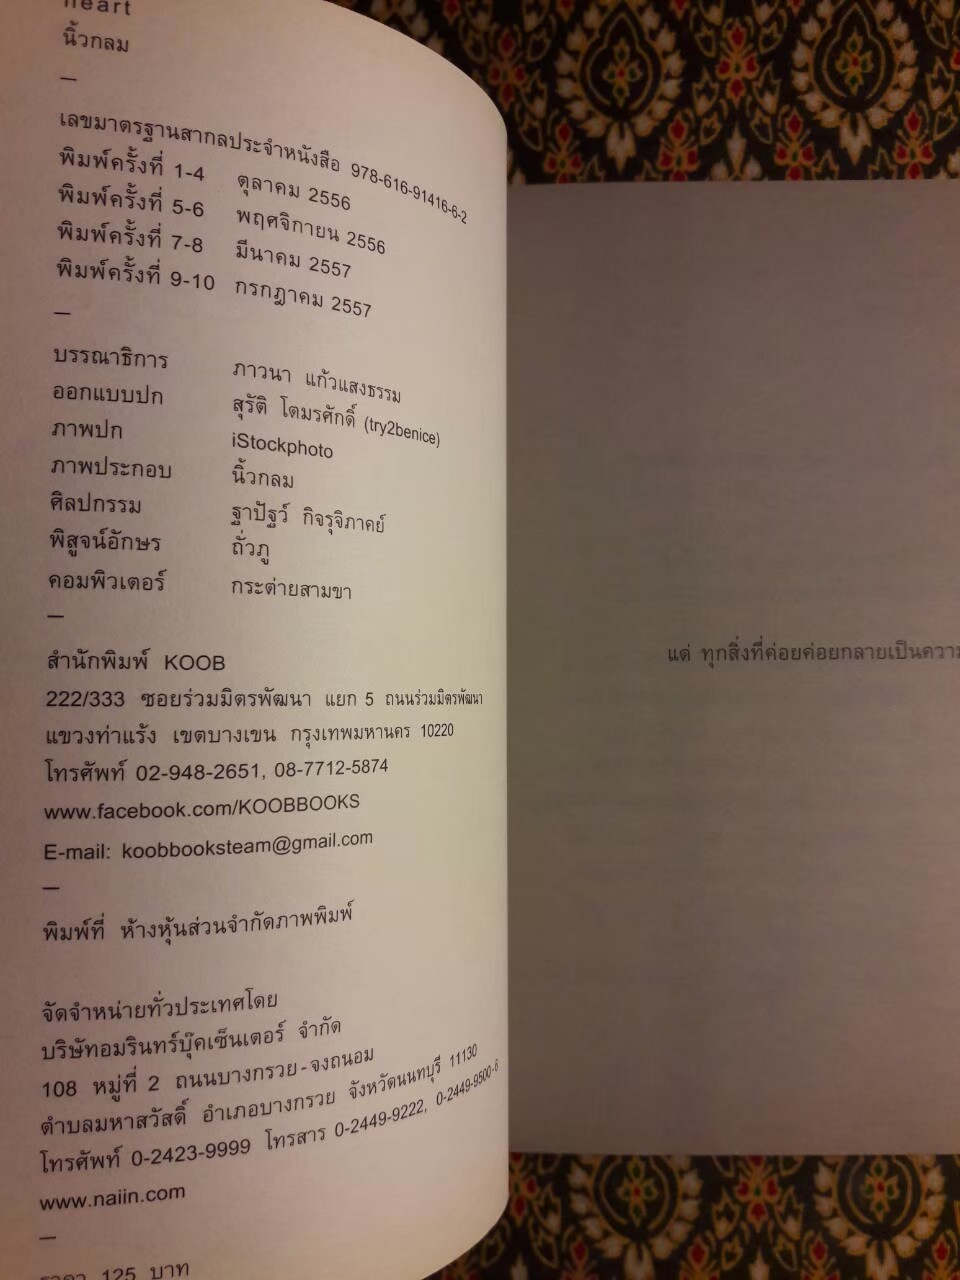 heart
นิ้วกลม
—
เลขมาตรฐานสากลประจำหนังสือ 978-616-91416-6-2
พิมพ์ครั้งที่ 1-4 ตุลาคม 2556
พิมพ์ครั้งที่ 5-6 พฤศจิกายน 2556
พิมพ์ครั้งที่ 7-8 มีนาคม 2557
พิมพ์ครั้งที่ 9-10 กรกฎาคม 2557
—
บรรณาธิการ ภาวนา แก้วแสงธรรม
ออกแบบปก สุรัติ โตมรศักดิ์ (try2benice)
ภาพปก iStockphoto
ภาพประกอบ นิ้วกลม
ศิลปกรรม ฐาปัฐว์ กิจรุจิภาคย์
พิสูจน์อักษร ถั่วภู
คอมพิวเตอร์ กระต่ายสามขา
—
สำนักพิมพ์ KOOB
222/333 ซอยร่วมมิตรพัฒนา แยก 5 ถนนร่วมมิตรพัฒนา
แขวงท่าแร้ง เขตบางเขน กรุงเทพมหานคร 10220
โทรศัพท์ 02-948-2651, 08-7712-5874
www.facebook.com/KOOBBOOKS
E-mail: koobbooksteam@gmail.com
—
พิมพ์ที่ ห้างหุ้นส่วนจำกัดภาพพิมพ์
จัดจำหน่ายทั่วประเทศโดย
บริษัทอมรินทร์บุ๊คเซ็นเตอร์ จำกัด
108 หมู่ที่ 2 ถนนบางกรวย-จงถนอม
ตำบลมหาสวัสดิ์ อำเภอบางกรวย จังหวัดนนทบุรี 11130
โทรศัพท์ 0-2423-9999 โทรสาร 0-2449-9222, 0-2449-9500-6
www.naiin.com
—
ราคา 125 บาท
แด่ ทุกสิ่งที่ค่อยค่อยกลายเป็นความ